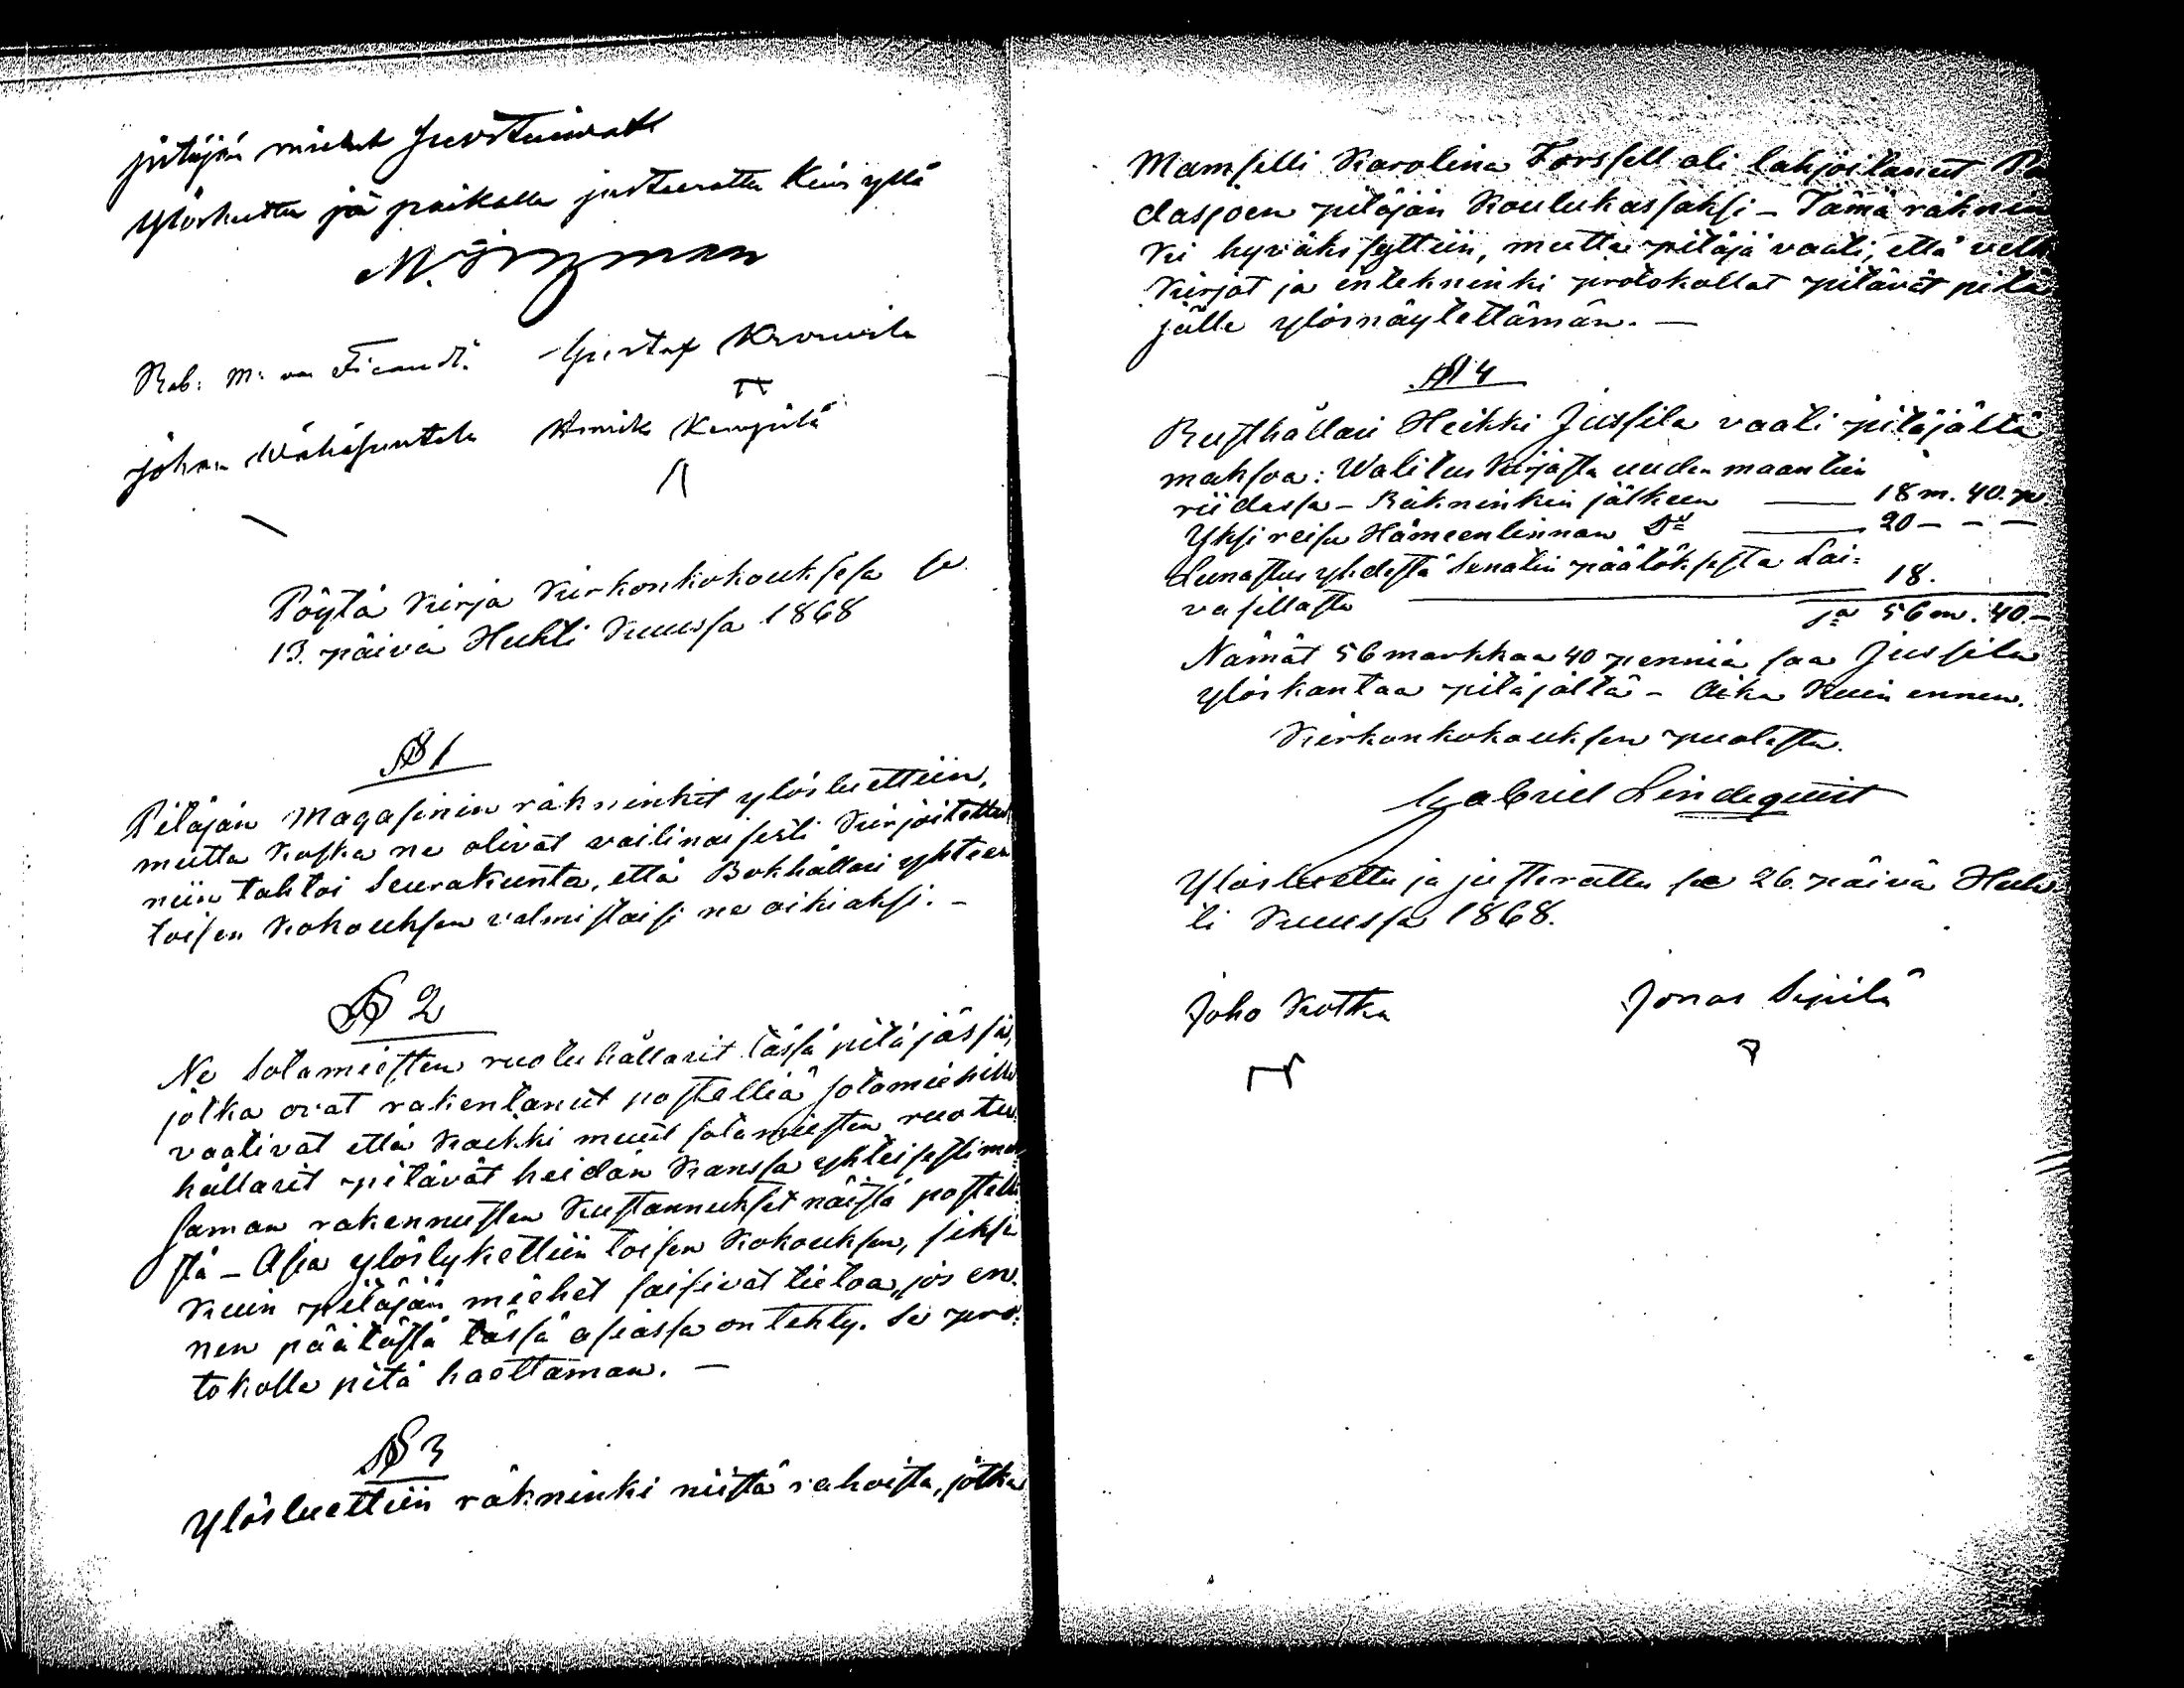 pitäjän miehet suostuiwat
Ylösluettu ja paikalla justeerattu kuin yllä
Rob: M: von Fieandt. Gustaf
Johan Wähäpuntela Kempilä
Pöytä kirja kirkonkokouksesa se
13. päivä Huhti kuussa 1868
§ 1
Pitäjän Magasinin räkninkit ylösluettiin,
mutta koska ne olivat vailinaisesti kirjoitettu
niin tahtoi Seurakunta, että Bokhållari yhteen
toisen kokouksen valmistaisi ne aikiaksi. –
§ 2
Ne Sotamiesten ruotuhållarit tässä pitäjässä,
jotka ovat rakentanut postelliä sotamiehille
vaativat että kaikki muut sotamiesten ruotu
hållarit pitävät heidän kanssa yhteisesti mak
saman rakennusten kustannukset näistä postelli
stä – Asia ylöslykättiin toisen kokouksen, siksi
kuin pitäjän miehet saisivat tietoa, jos en-
nen päätöstä tässä asiassa on tehty. Se pro-
tokolla pitä haettaman. –
§ 3
Ylösluettiin räkninki niistä rahoista, jotka
Mamselli Karolina Forssell oli lahjoitanut Pa
dasjoen pitäjän koulukassaksi – Tämä räknin
ki hyväksyttiin, mutta pitäjä vaati, että velka
kirjat ja inteckninki protokollat pitävät pitä
jälle ylösnäytettämän. –
§ 4
Rusthållari Heikki Jussila vaati pitäjältä
maksoa: Walitus kirjasta uuden maantien
riidassa – Räkninkin jälkeen — 18 m. 40. p
Yksi reisu Hämeenlinnan Do — 20 – – –
Lunastus yhdestä Senatin päätöksestä Lai-
vasillasta — 18.
Sa 56 m. 40. –
Nämät 56 markkaa 40 penniä saa Jussila
ylöskantaa pitäjältä – Aika kuin ennen.
Kirkonkokouksen puolesta.
Gabriel Lindequist
Ylösluettu ja justerattu se 26. päivä Huh
ti kuussa 1868.
Joho Kotka Jonas Sipilä